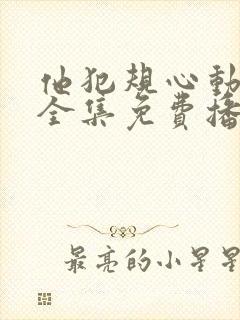 他犯規心動
全集免費播
最亮的小星星